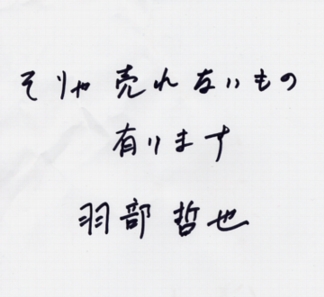 そりゃ売れないもの
有ります
羽部哲也